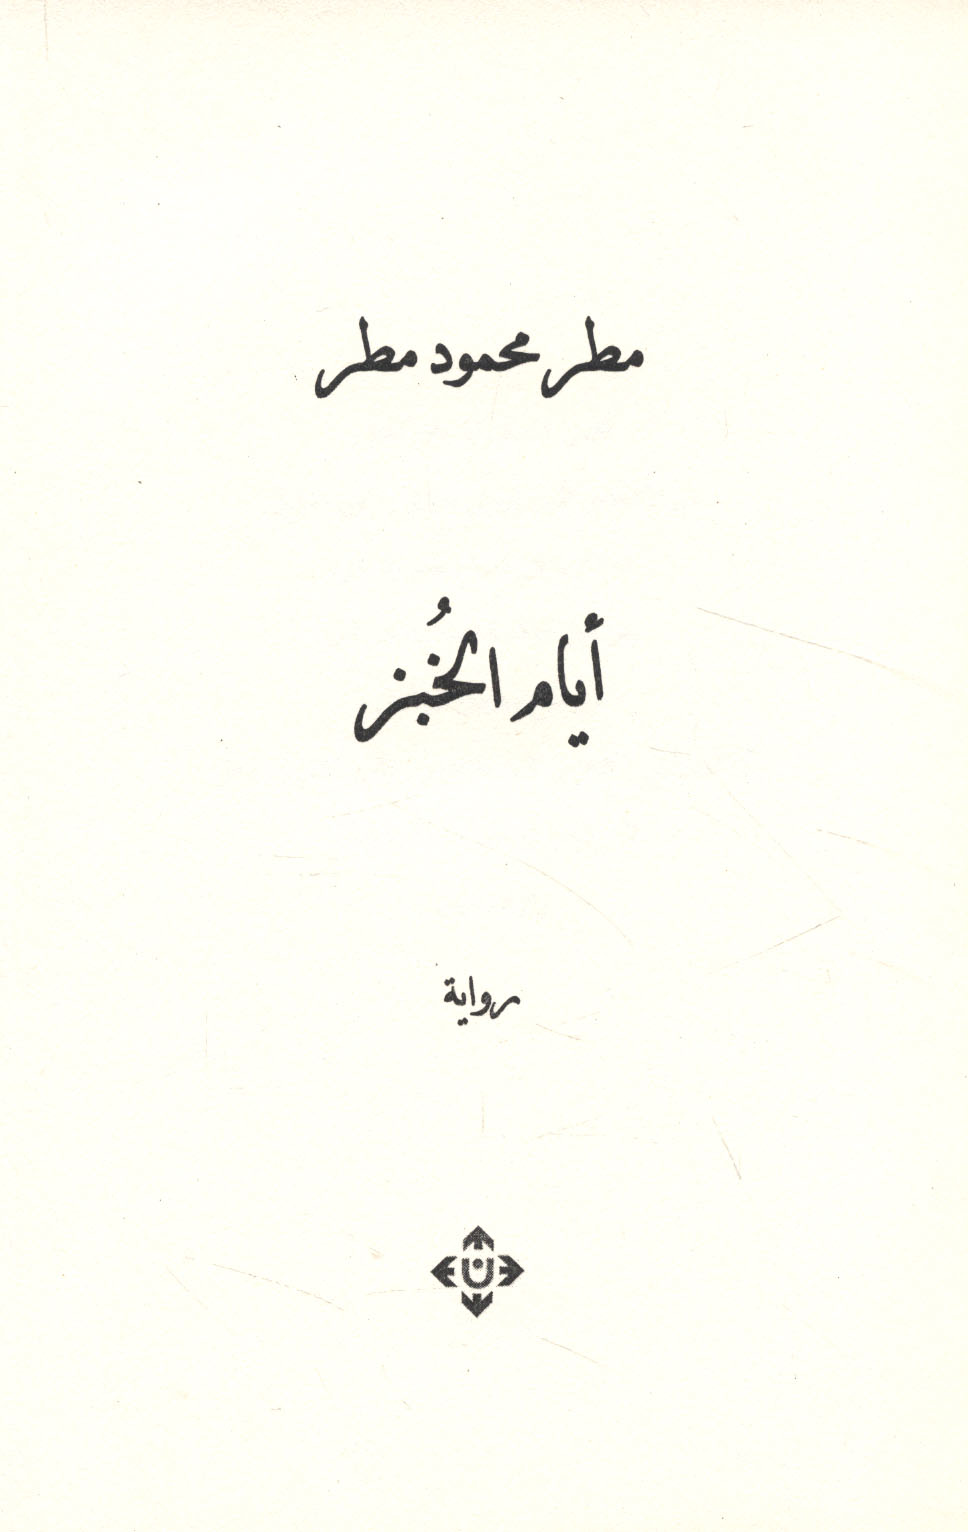 مطر محمود مطر
أيام الخُبز
رواية
ن